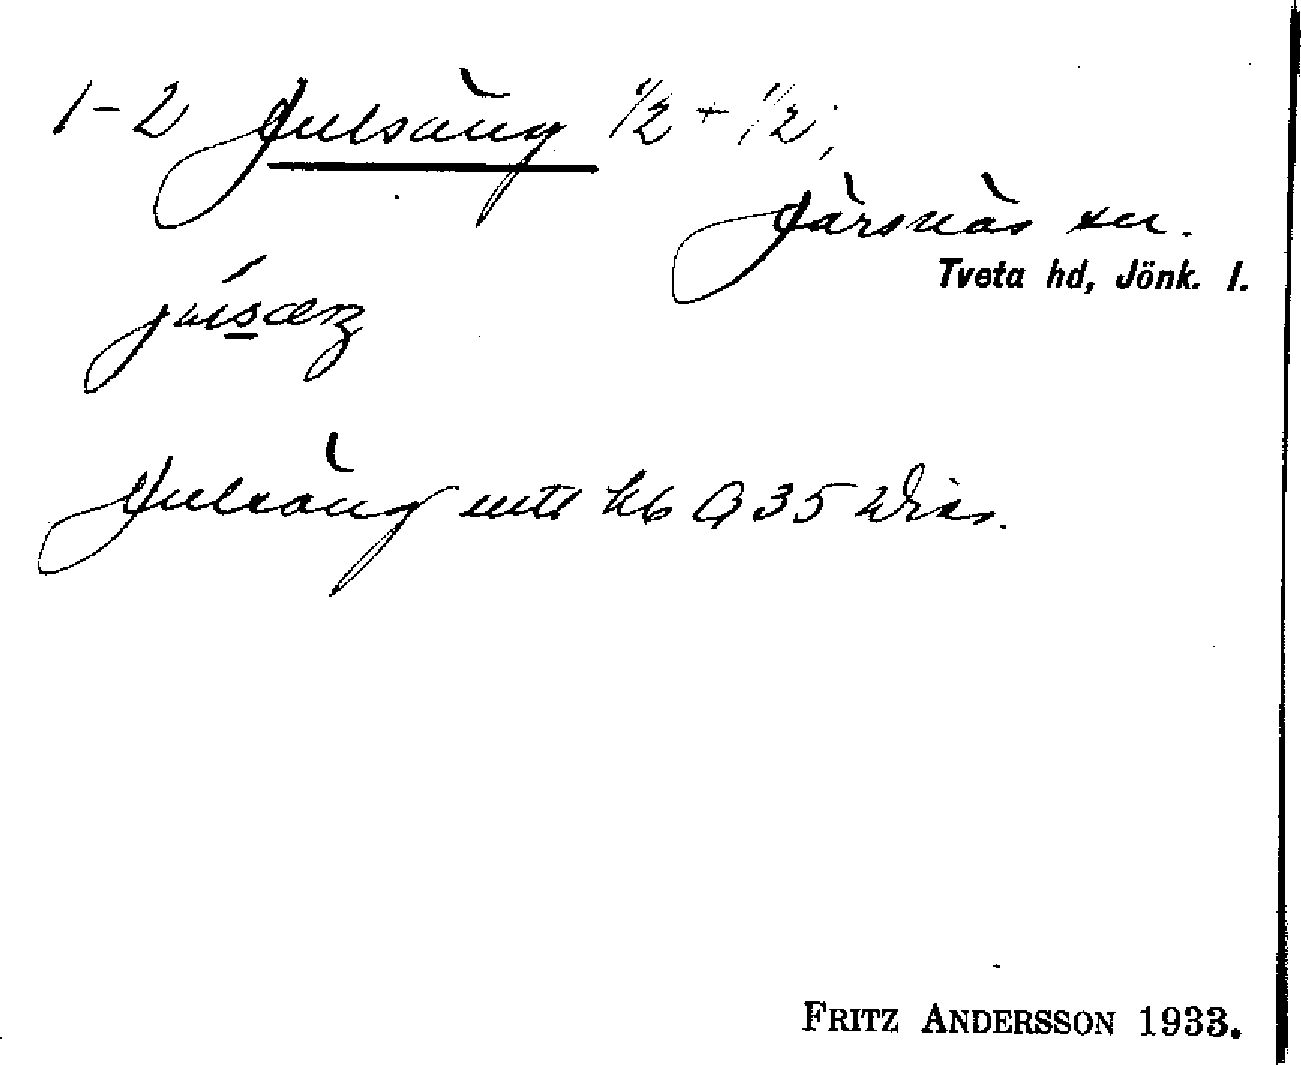 1-2 Julsäng 1/2 + 1/2;
Järsnäs sn.
Tveta hd, Jönk. l.
Julsäng mtl kb G35 Wiss.
FRITZ ANDERSSON 1933.